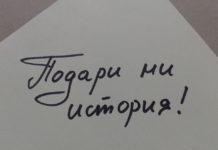 Подари ми
история!